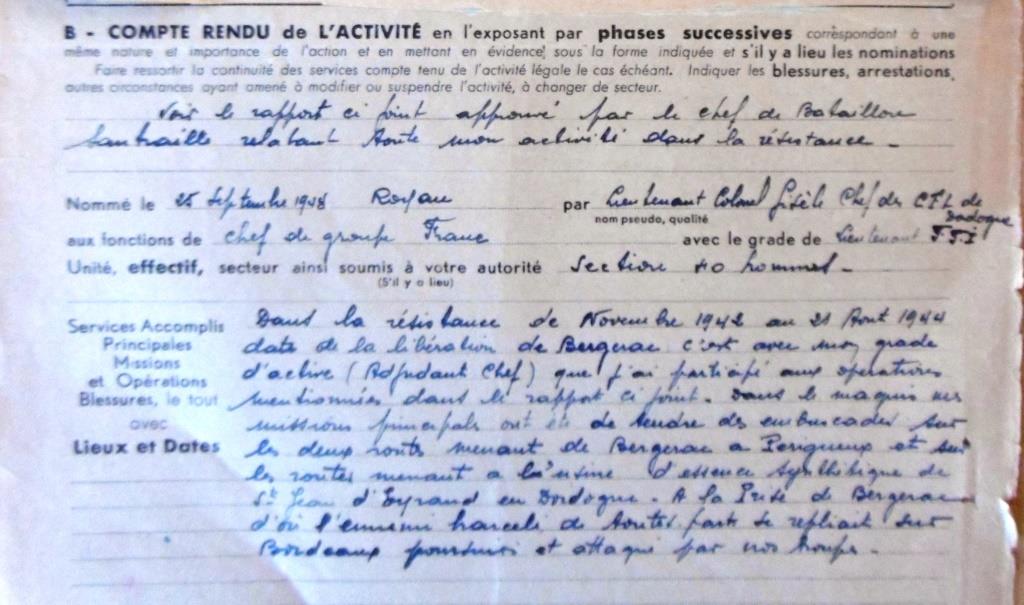 B - COMPTE RENDU de L'ACTIVITÉ en l'exposant par phases successives correspondant à une
même nature et importance de l'action et en mettant en évidence, sous la forme indiquée et s'il y a lieu les nominations
Faire ressortir la continuité des services compte tenu de l'activité légale le cas échéant. Indiquer les blessures, arrestations,
autres circonstances ayant amené à modifier ou suspendre l'activité, à changer de secteur.
Voir le rapport ci joint approuvé par le chef de Bataillon
relatant toute mon activité dans la résistance -
Nommé le 25 Septembre Royan par Lieutenant Colonel Gisèle Chef des de
nom pseudo, qualité
Dodogne
aux fonctions de chef de groupe Franc avec le grade de Lieutenant
Unité, effectif, secteur ainsi soumis à votre autorité Section 40 hommes -
(S'il y a lieu)
Services Accomplis
Principales
Missions
et Opérations
Blessures, le tout
avec
Lieux et Dates
Dans la résistance de Novembre 1942 au 21 Aout 1944
date de la libération de Bergerac c'est avec mon grade
d'active (Adjudant Chef) que j'ai participé aux opérations
mentionnées dans le rapport ci joint. Dans le maquis nos
missions principals ont été de tendre des embuscades sur
les deux routes menant de Bergerac a Perigueux et sur
les routes menant a l'usine d'essence synthétique de
St Jean d'Eyraud en Dordogne - A la Prise de Bergerac
d'où l'ennemi harcelé de toutes parts se repliait sur
Bordeaux poursuivi et attaqué par nos troupes -